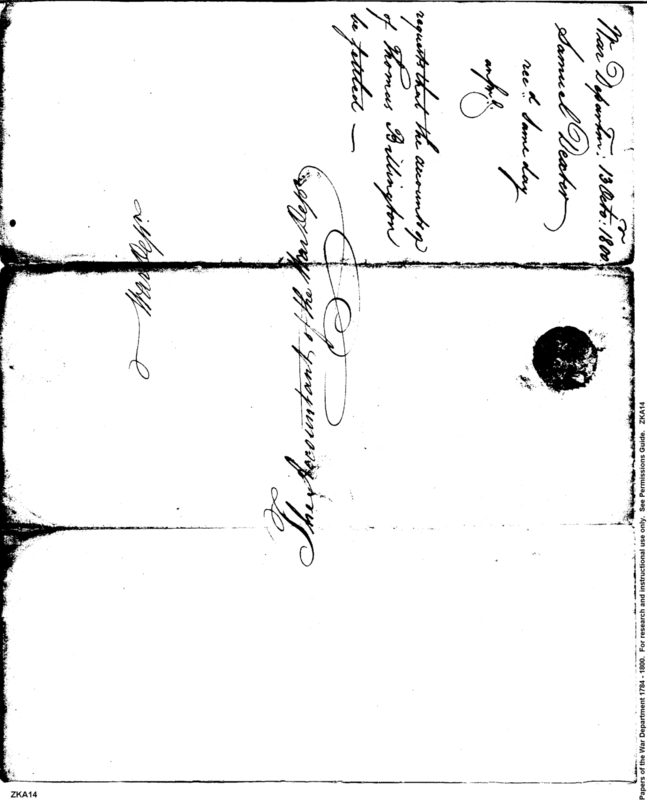 War Departmt. 13 Octo.r 1800
Samuel Dexter
rec.d Same day
ansd.
requests that the account of
of Thomas Billington
be settled —
The Accountant of the War Dept.
War Dept.
Papers of the War Department 1784 - 1800. For research and instructional use only. See Permissions Guide. ZKA14
ZKA14